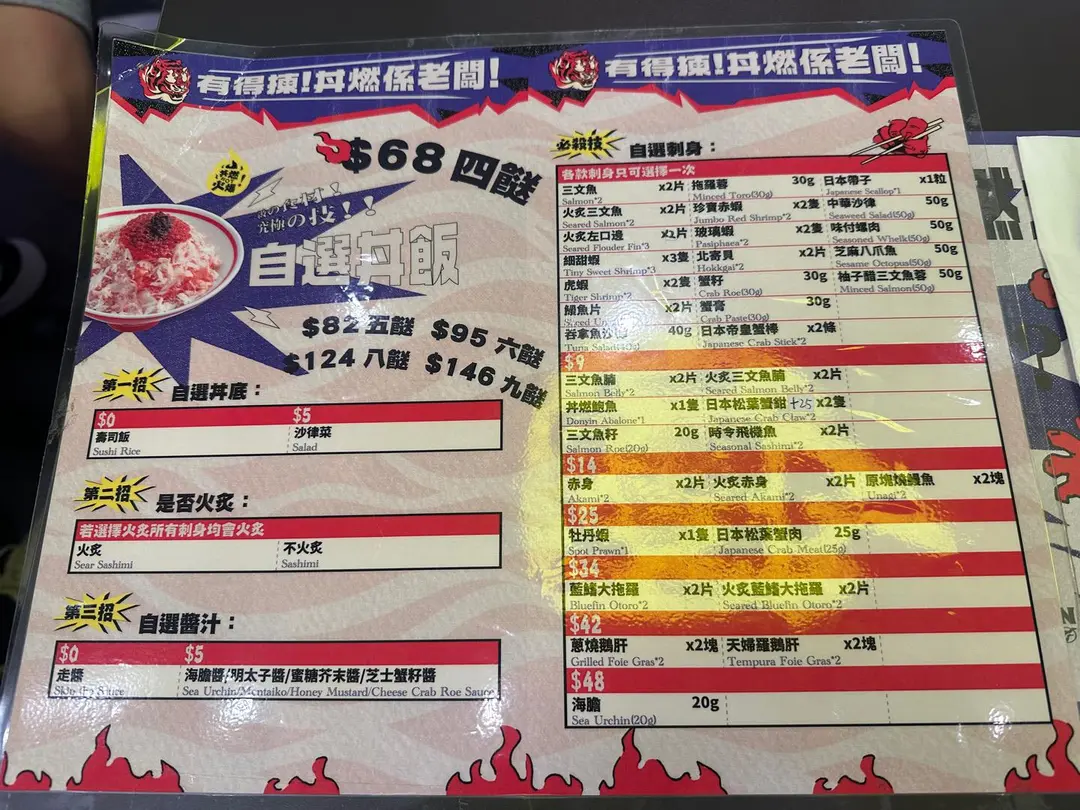 有得揀!丼燃係老闆!
$68 四餸
丼燃!
火爆
究極の技!!
自選丼飯
$82 五餸 $95 六餸
$124 八餸 $146 九餸
第一招 自選丼底:
$0 $5
壽司飯 沙律菜
Sushi Rice Salad
第二招 是否火炙:
若選擇火炙所有刺身均會火炙
火炙 不火炙
Sear Sashimi Sashimi
第三招 自選醬汁:
$0 $5
走醬 海膽醬/明太子醬/蜜糖芥末醬/芝士蟹籽醬
Skip the Sauce Sea Urchin/Mentaiko/Honey Mustard/Cheese Crab Roe Sauce
有得揀!丼燃係老闆!
必殺技 自選刺身:
各款刺身只可選擇一次
三文魚 x2片 拖羅蓉 30g 日本帶子 x1粒
Salmon*2 Minced Toro(30g) Japanese Scallop*1
火炙三文魚 x2片 珍寶赤蝦 x2隻 中華沙律 50g
Seared Salmon*2 Jumbo Red Shrimp*2 Seaweed Salad(50g)
火炙左口邊 x2片 玻璃蝦 x2隻 味付螺肉 50g
Seared Flouder Fin*3 Pasiphaea*2 Seasoned Whelk(50g)
細甜蝦 x3隻 北寄貝 x2片 芝麻八爪魚 50g
Tiny Sweet Shrimp*3 Hokkgai*2 Sesame Octopus(50g)
虎蝦 x2隻 蟹籽 30g 柚子醋三文魚蓉 50g
Tiger Shrimp*2 Crab Roe(30g) Minced Salmon(50g)
鰻魚片 x2片 蟹膏 30g
Crab Paste(30g)
吞拿魚沙律 40g 日本帝皇蟹棒 x2條
Tuna Salad(40g) Japanese Crab Stick*2
$9
三文魚腩 x2片 火炙三文魚腩 x2片
Salmon Belly*2 Seared Salmon Belly*2
丼燃鮑魚 x1隻 日本松葉蟹鉗 +25 x2隻
Donyin Abalone*1 Japanese Crab Claw*2
三文魚籽 20g 時令飛機魚 x2片
Salmon Roe(20g) Seasonal Sashimi*2
$14
赤身 x2片 火炙赤身 x2片 原塊燒鰻魚 x2塊
Akami*2 Seared Akami*2 Unagi*2
$25
牡丹蝦 x1隻 日本松葉蟹肉 25g
Spot Prawn*1 Japanese Crab Meat(25g)
$34
藍鰭大拖羅 x2片 火炙藍鰭大拖羅 x2片
Bluefin Otoro*2 Seared Bluefin Otoro*2
$42
蔥燒鵝肝 x2塊 天婦羅鵝肝 x2塊
Grilled Foie Gras*2 Tempura Foie Gras*2
$48
海膽 20g
Sea Urchin(20g)